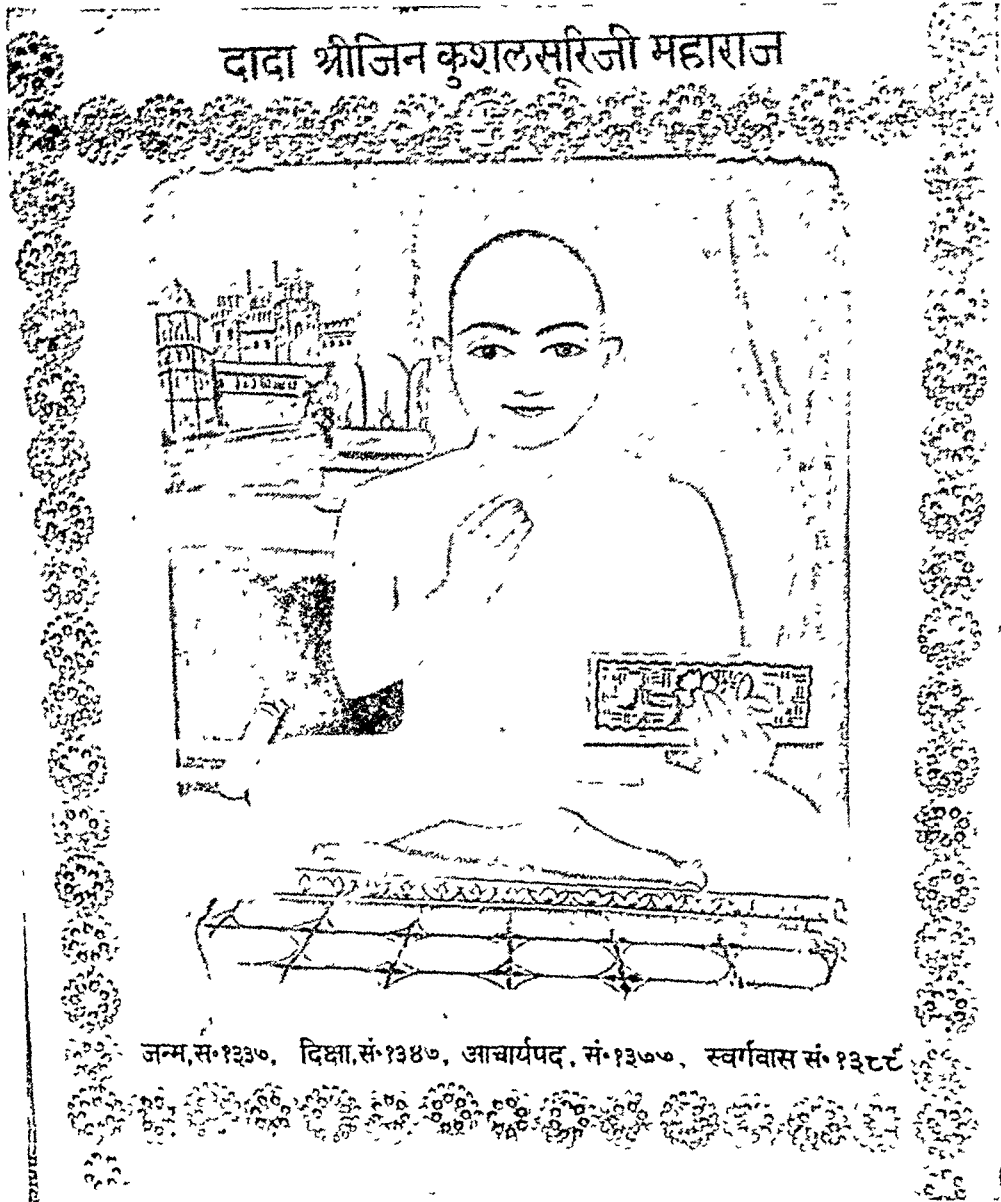 दादा श्रीजिन कुशलसूरिजी महाराज
जन्म,सं॰१३३७, दिक्षा,सं॰१३४७, आचार्यपद, सं॰१३७७, स्वर्गवास सं॰१३८९